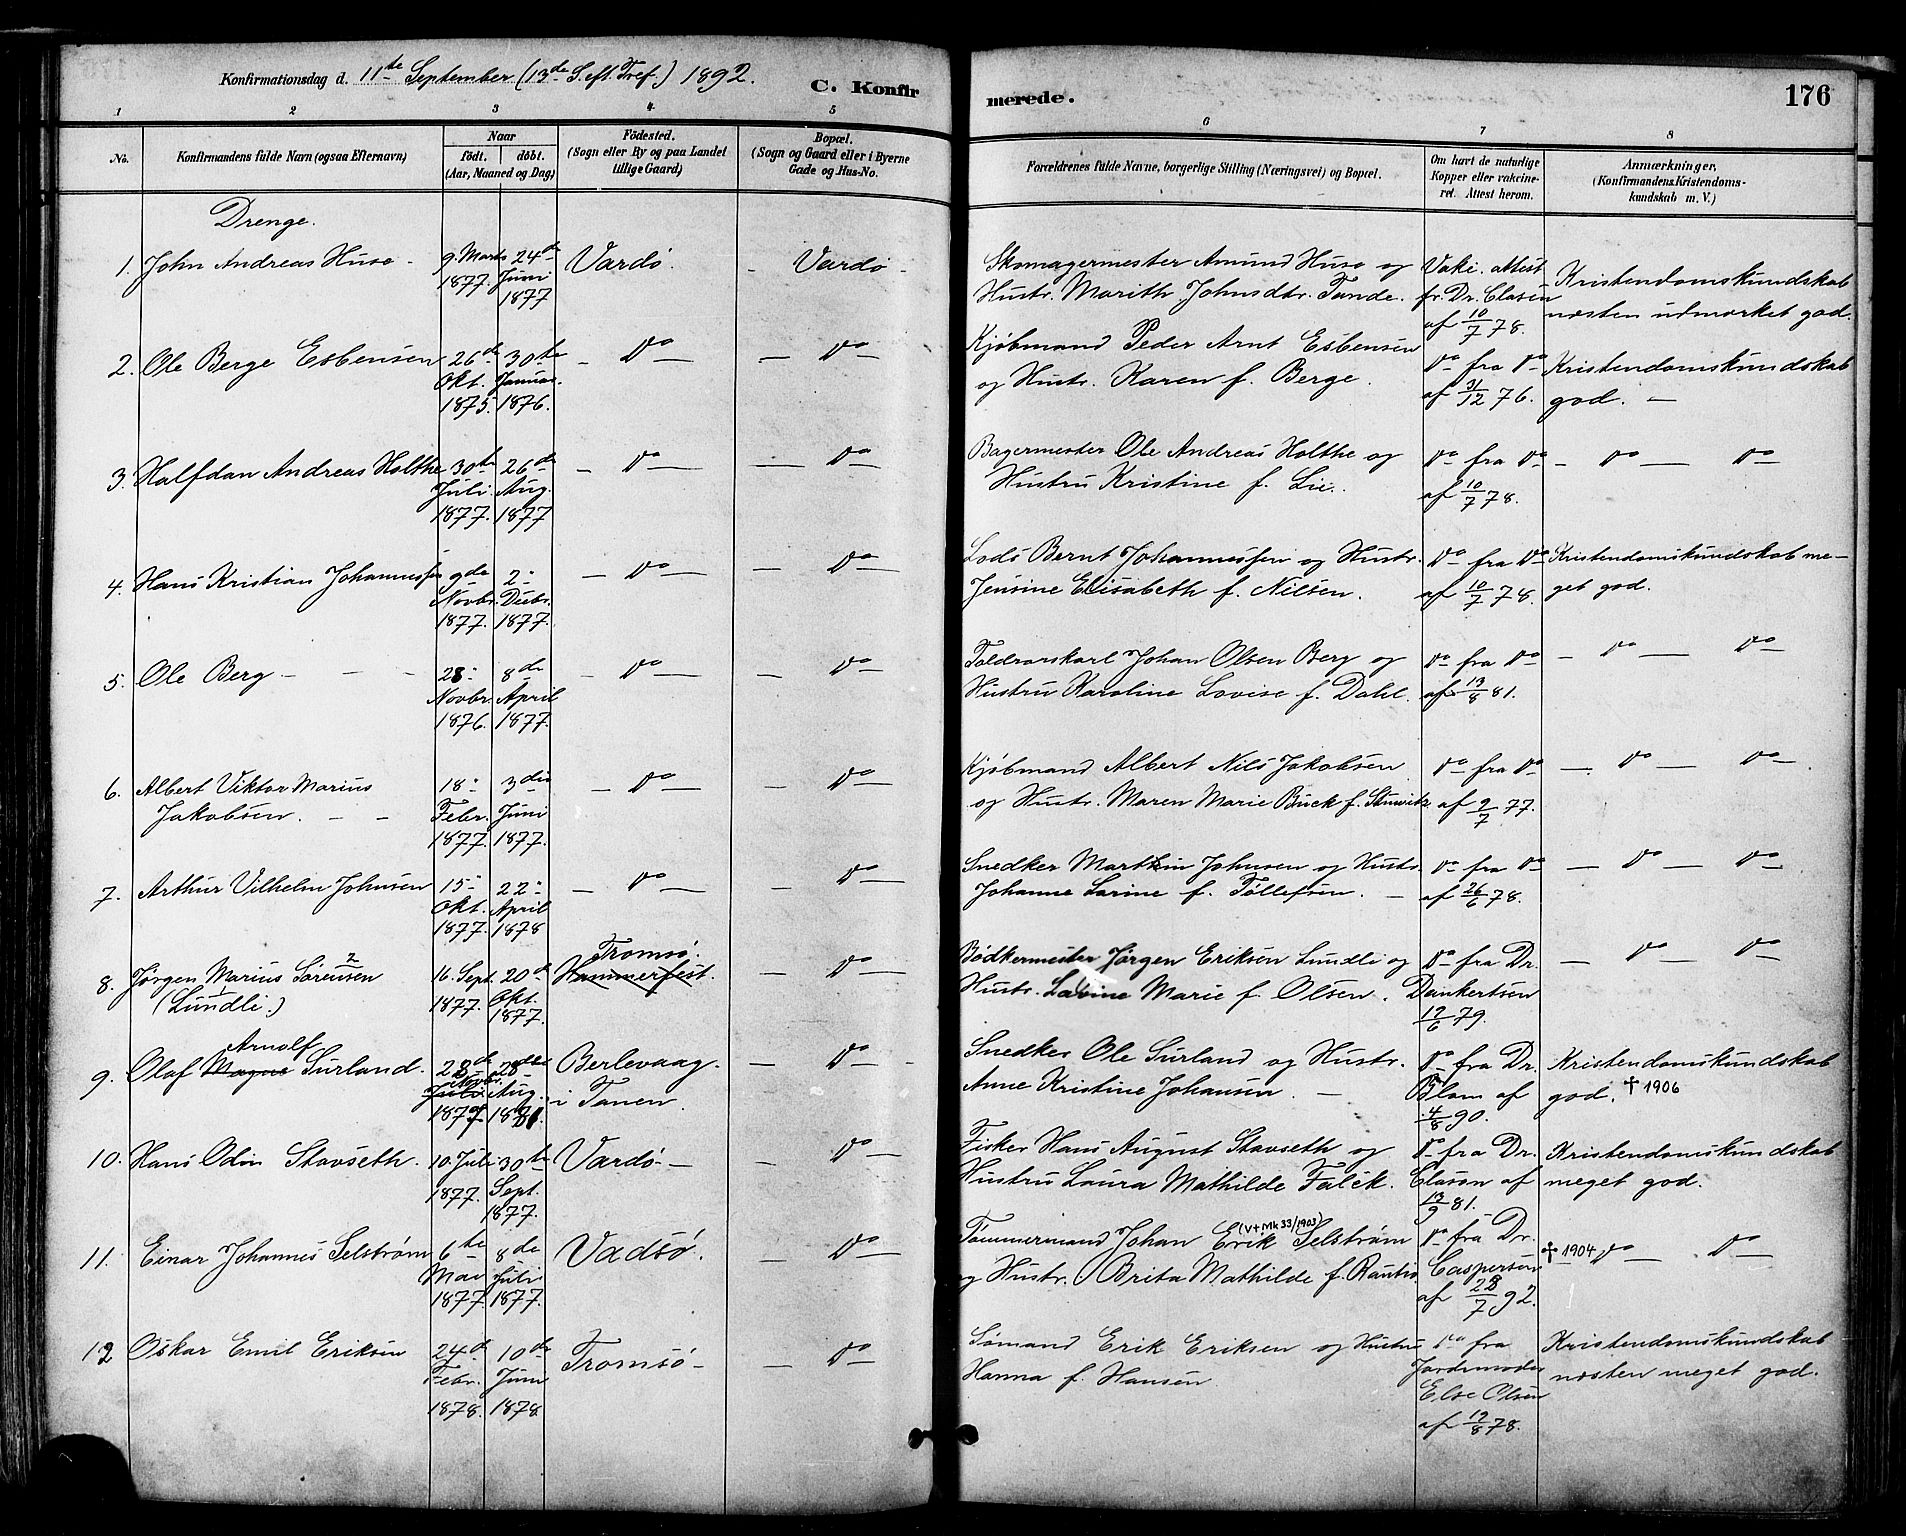 Konfirmationsdag d. 11te September (13de S. eft. Tref.) 1892.
C. Konfirmerede.
176
1 2 3 4 5 6 7 8
No.
Konfirmandens fulde Navn (ogsaa Efternavn)
Naar
födt. döbt.
(Aar, Maaned og Dag)
Födested.
(Sogn eller By og paa Landet
tillige Gaard)
Bopæl.
(Sogn og Gaard eller i Byerne
Gade og Hus-No.
Forældrenes fulde Navne, borgerlige Stilling (Næringsvei) og Bopæl.
Om havt de naturlige
Kopper eller vakcine-
ret. Attest herom.
Anmærkninger,
(Konfirmandens Kristendoms-
kundskab m. V.)
Drenge.
1. John Andreas Huso - 9. Marts 1877. 24de Juni 1877 Vardö. - Vardö -
Skomagermester Amund Huso og
Hustr. Marith Johnsdtr. Tande.
Vaki. attest
fr. Dr. Clasen
af 10/7 78.
Kristendomskundskab
næsten udmærket god.
2. Ole Berge Esbensen 26de Okt. 1875. 30te Januar. 1876. - Do - - Do -
Kjöbmand Peder Arnt Esbensen
og Hustr. Karen f. Berge.
Do fra Do
af 31/12 76.
Kristendomskundskab
god. -
3. Halfdan Andreas Holthe 30te Juli 1877. 26de Aug. 1877 - Do - - Do -
Bagermester Ole Andreas Holthe og
Hustru Kristine f. Lie.
Do fra Do
af 10/7 78.
- Do - Do -
4. Hans Kristian Johannessen 9de Novbr. 1877. 2- Decbr. 1877. - Do - - Do -
Lods Bernt Johannessen og Hustr.
Jensine Elisabeth f. Nilsen.
Do fra Do
af 10/7 78.
Kristendomskundskab me-
get god.
5. Ole Berg - - - 28- Novbr. 1876. 8de April 1877. - Do - - Do -
Toldrorskarl Johan Olsen Berg og
Hustru Karoline Lovise f. Dahl.
Do fra Do
af 13/8 81.
- Do - Do -
6. Albert Viktor Marius
Jakobsen. - - 18- Febr. 1877. 3die Juni 1877. - Do - - Do -
Kjöbmand Albert Nils Jakobsen
og Hustr. Maren Marie Buck f.
Do fra Do
af 9/7 77.
- Do - Do -
7. Arthur Vilhelm Johnsen 15- Okt. 1877. 22- April 1878 - Do - - Do -
Snedker Marthin Johnsen og Hustr.
Johanne Larine f. Tøllefsen. -
Do fra Do
af 26/6 78.
- Do - Do -
8. Jørgen Marius Sørensen
(Lundli.) 16. Sept. 1877. 20de Okt. 1877. Tromsö. Hammerfest. - Do -
Bödkermester Jørgen Eriksen Lundli og
Hustr. Marie f. Olsen.
Do fra Dr.
Dankertsen
12/6 79.
- Do - Do -
9. Olaf Magne Arnolf Surland. 28de Juli Novbr. 28de Aug. Berlevaag
i Tanen. - Do -
Snedker Ole Surland og Hustr.
Anne Kristine Johansen. -
Do fra Dr.
Blom af
4/8 90.
Kristendomskundskab
god. † 1906
10. Hans Odin Stavseth. 10. Juli 1877. 30te Sept. 1877. Vardö. - - Do -
Fisker Hans August Stavseth og
Hustru Laura Mathilde Falck.
Do fra Dr.
Clason af
13/9 81.
Kristendomskundskab
meget god.
11. Einar Johannes Selström 6te Mai 1877. 8de Juli 1877. Vadsø. - Do -
Tømmermand Johan Erik (V+Mk 33/1903) Selström
og Hustr. Brita Mathilde f. Rautio
Do fra Dr.
Caspersen
af 28/7 92.
† 1904 Do - Do -
12 Oskar Emil Eriksen 24de Febr. 1878. 10de Juni 1878. Tromsö - - Do -
Sömand Erik Eriksen og Hustru
Hanna f. Hansen
Do fra
Jordemoder
Else Olsen
af 12/8 78.
Kristendomskundskab
næsten meget god.